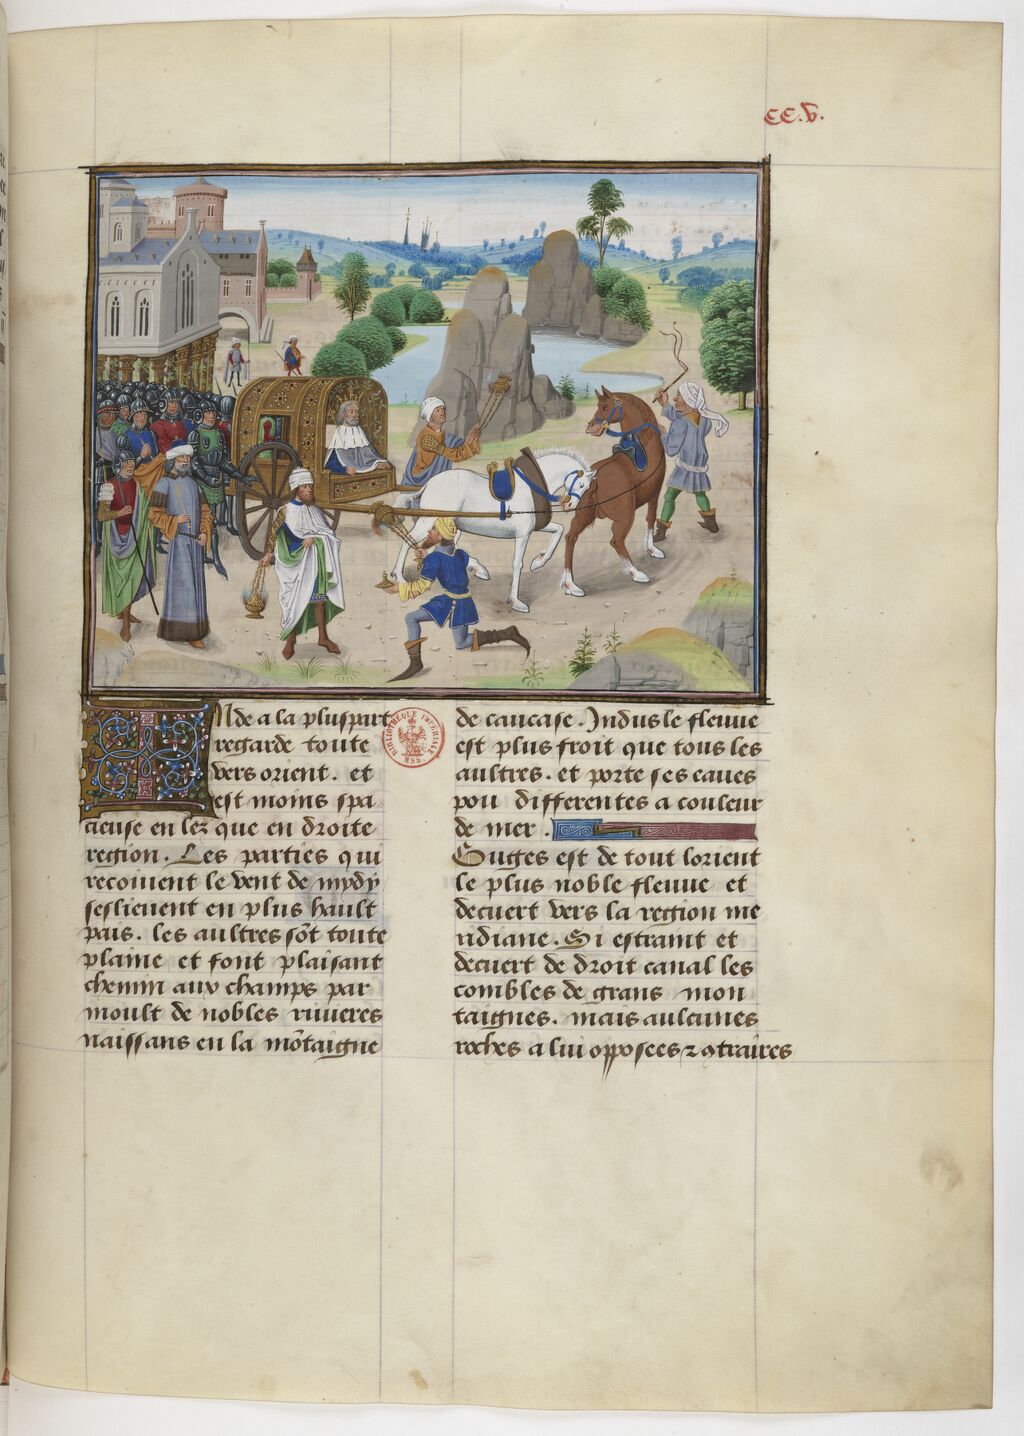 CC.V.
Inde a la pluspart
regarde toute
vers orient. et
est moins spa
cieuse en lez que en droite
region. Les parties qui
recoiuent le vent de mydy
seslieuent en plus hault
pais. les aultres sōt toute
plaine et font plaisant
chemin aux champs par
moult de nobles riuieres
naissans en la mōtaigne
BIBLIOTHÈQUE IMPÉRIALE MSS.
de caucase. Indus le fleuue
est plus froit que tous les
aultres. et porte ses eaues
pou differentes a couleur
de mer.
Guges est de tout lorient
le plus noble fleuue et
decuert vers la region me
ridiane. Si estraint et
decuert de droit canal les
combles de grans mon
taignes. mais aulcunes
roches a lui opposees ⁊ ꝯtraires